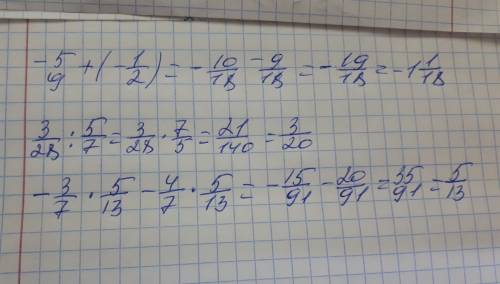 -5/9 + (-1/2) = -10/18 - 9/18 = -19/18 = -1 1/18
3/28 : 5/7 = 3/28 · 7/5 = 21/140 = 3/20
-3/7 · 5/13 - 4/7 · 5/13 = -15/91 - 20/91 = 35/91 = 5/13